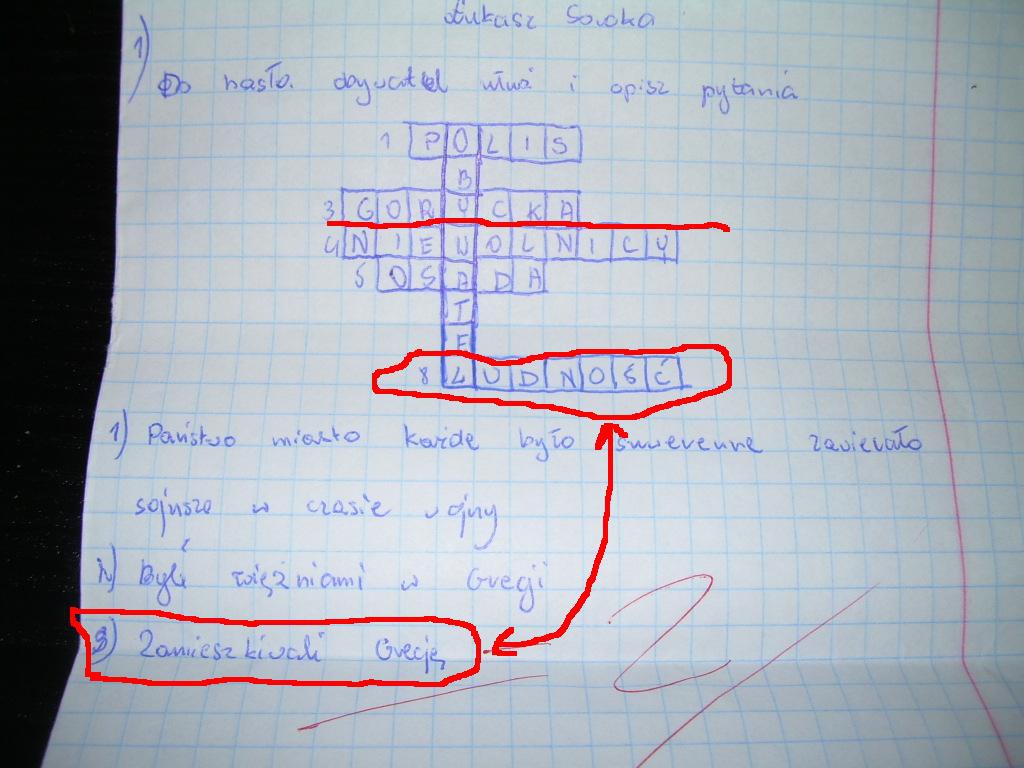 Łukasz Sowka
1)
Do hasło. dogwatel ułuż i opisz pytania
1 POLIS
B
3 GORYCKA
4 NIEWOLNICY
5 OSADA
T
E
8 LUDNOŚĆ
1) Państwo miasto każde było suwerenne zawierało
sojusze w czasie wojny
4) Byli więźniami w Grecji
8) Zamieszkiwali Grecję
2